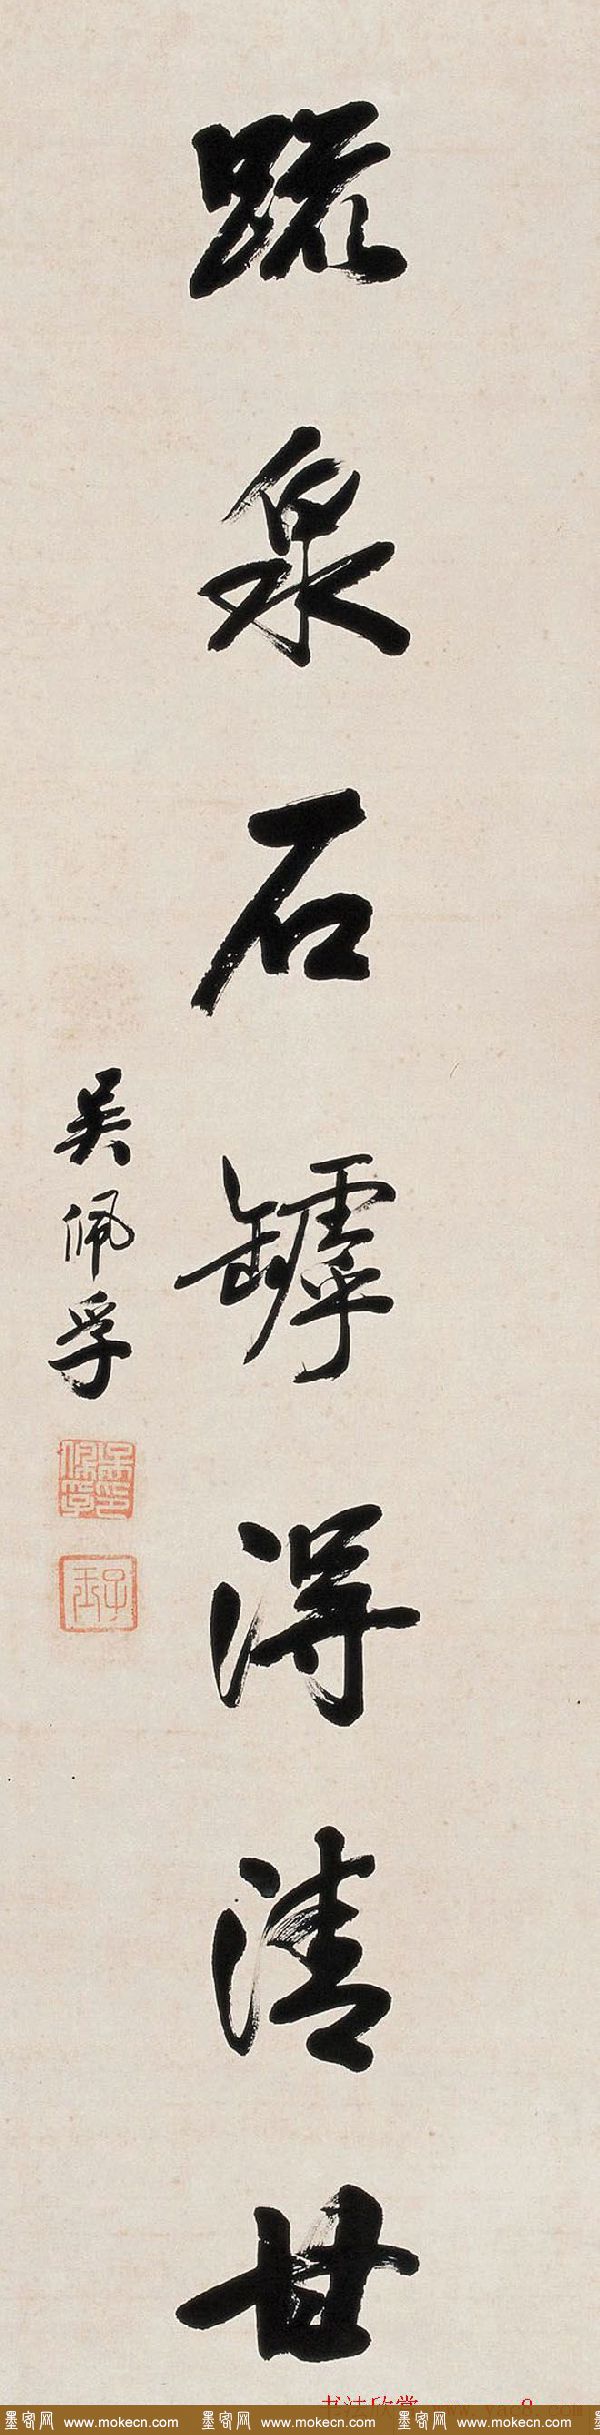 疏泉石罅得清甘
吴佩孚
吴佩孚印
子玉
书法欣赏 www.yac8.com
墨客网 www.mokecn.com 墨客网 www.mokecn.com 墨客网 www.mokecn.com